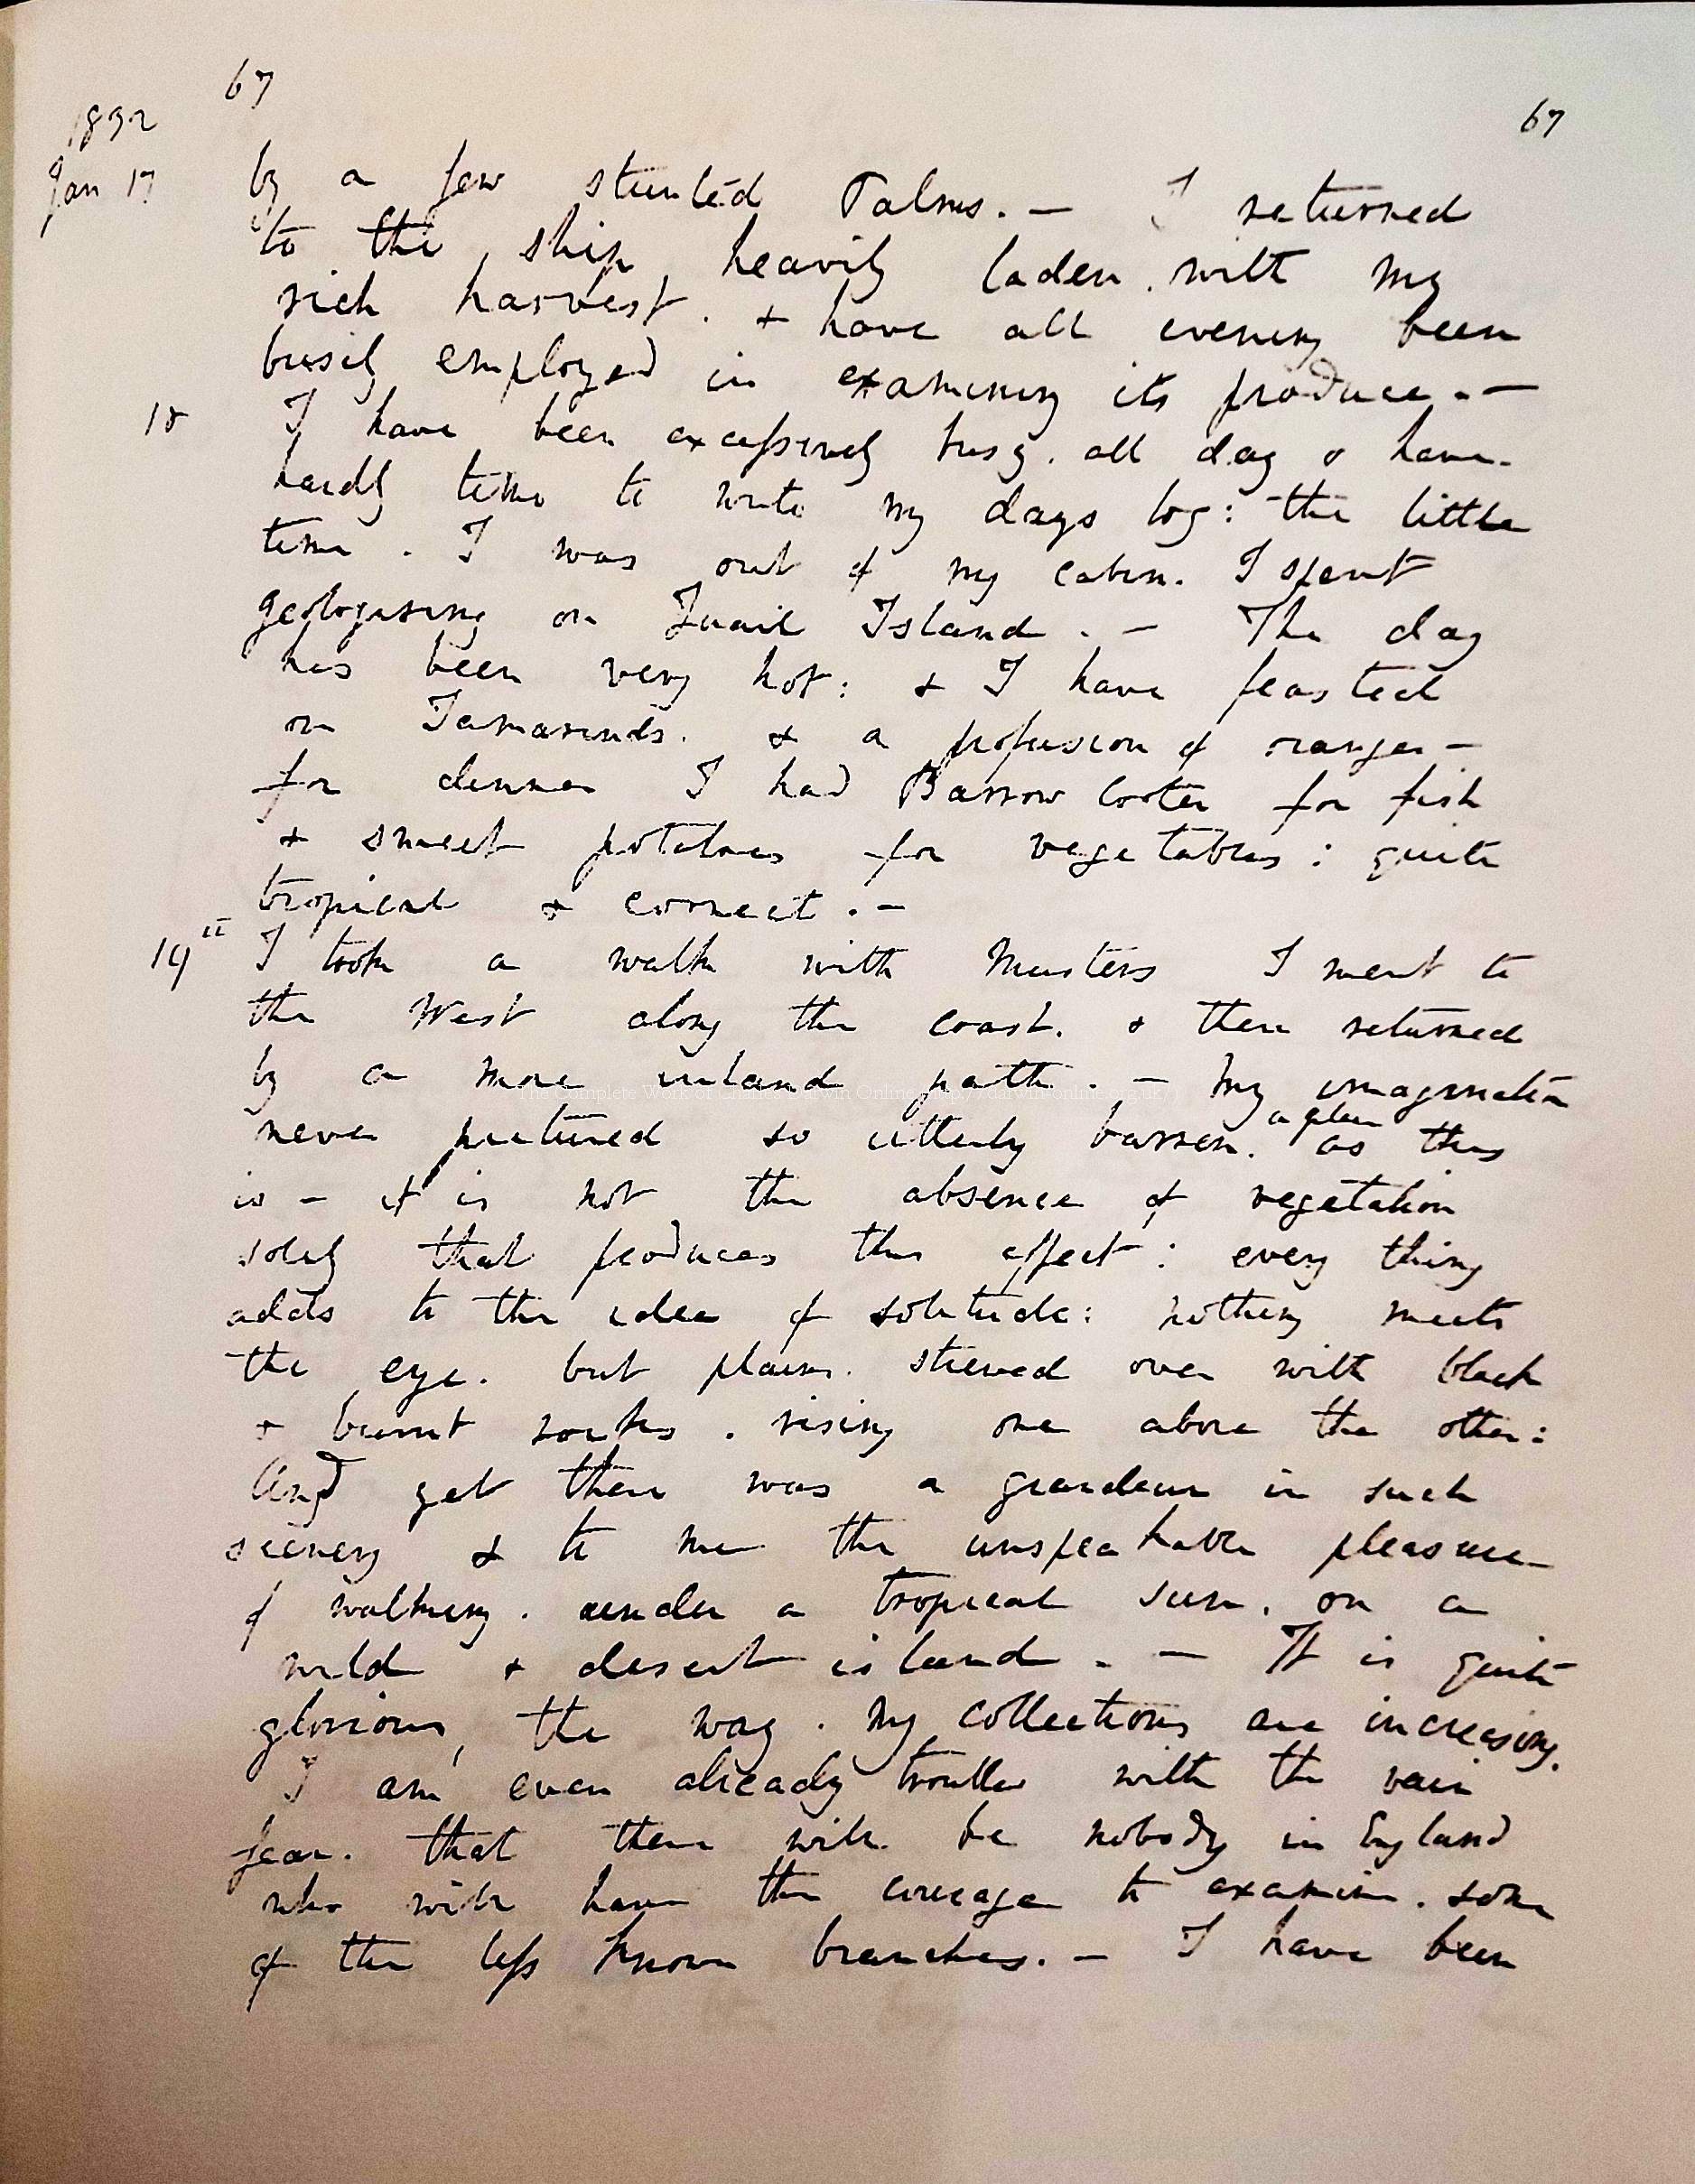 67
1832
67
Jan 17
by a few stunted Palms. — I returned
to the ship, heavily laden with my
rich harvest. & have all evening been
busily employed in examining its produce. —
18 I have been excessively busy. all day & have
hardly time to write my days log: the little
time. I was out of my cabin. I spent
geologising on Quail Island. — The day
has been very hot: & I have feasted
on Tamarinds. & a profusion of oranges —
for dinner I had Barrow Cooter for fish
& sweet potatoes for vegetables: quite
tropical & correct. —
19th I took a walk with Musters I went to
the West along the coast. & then returned
by a more inland path. — My imagination
never pictured so utterly barren. a place as this
is — it is not the absence of vegetation
solely that produces this effect: every thing
adds to the idea of solitude: nothing meets
the eye. but plains. strewed over with black
& burnt rocks. rising one above the other:
And yet there was a grandeur in such
scenery & to me the unspeakable pleasure
of walking. under a tropical sun. on a
wild & desert island. — It is quite
glorious, the way. my collections are increasing.
I am even already troubled with the vain
fear. that there will be nobody in England
who will have the courage to examine. some
of the less known branches. — I have been
The Complete Work of Charles Darwin Online